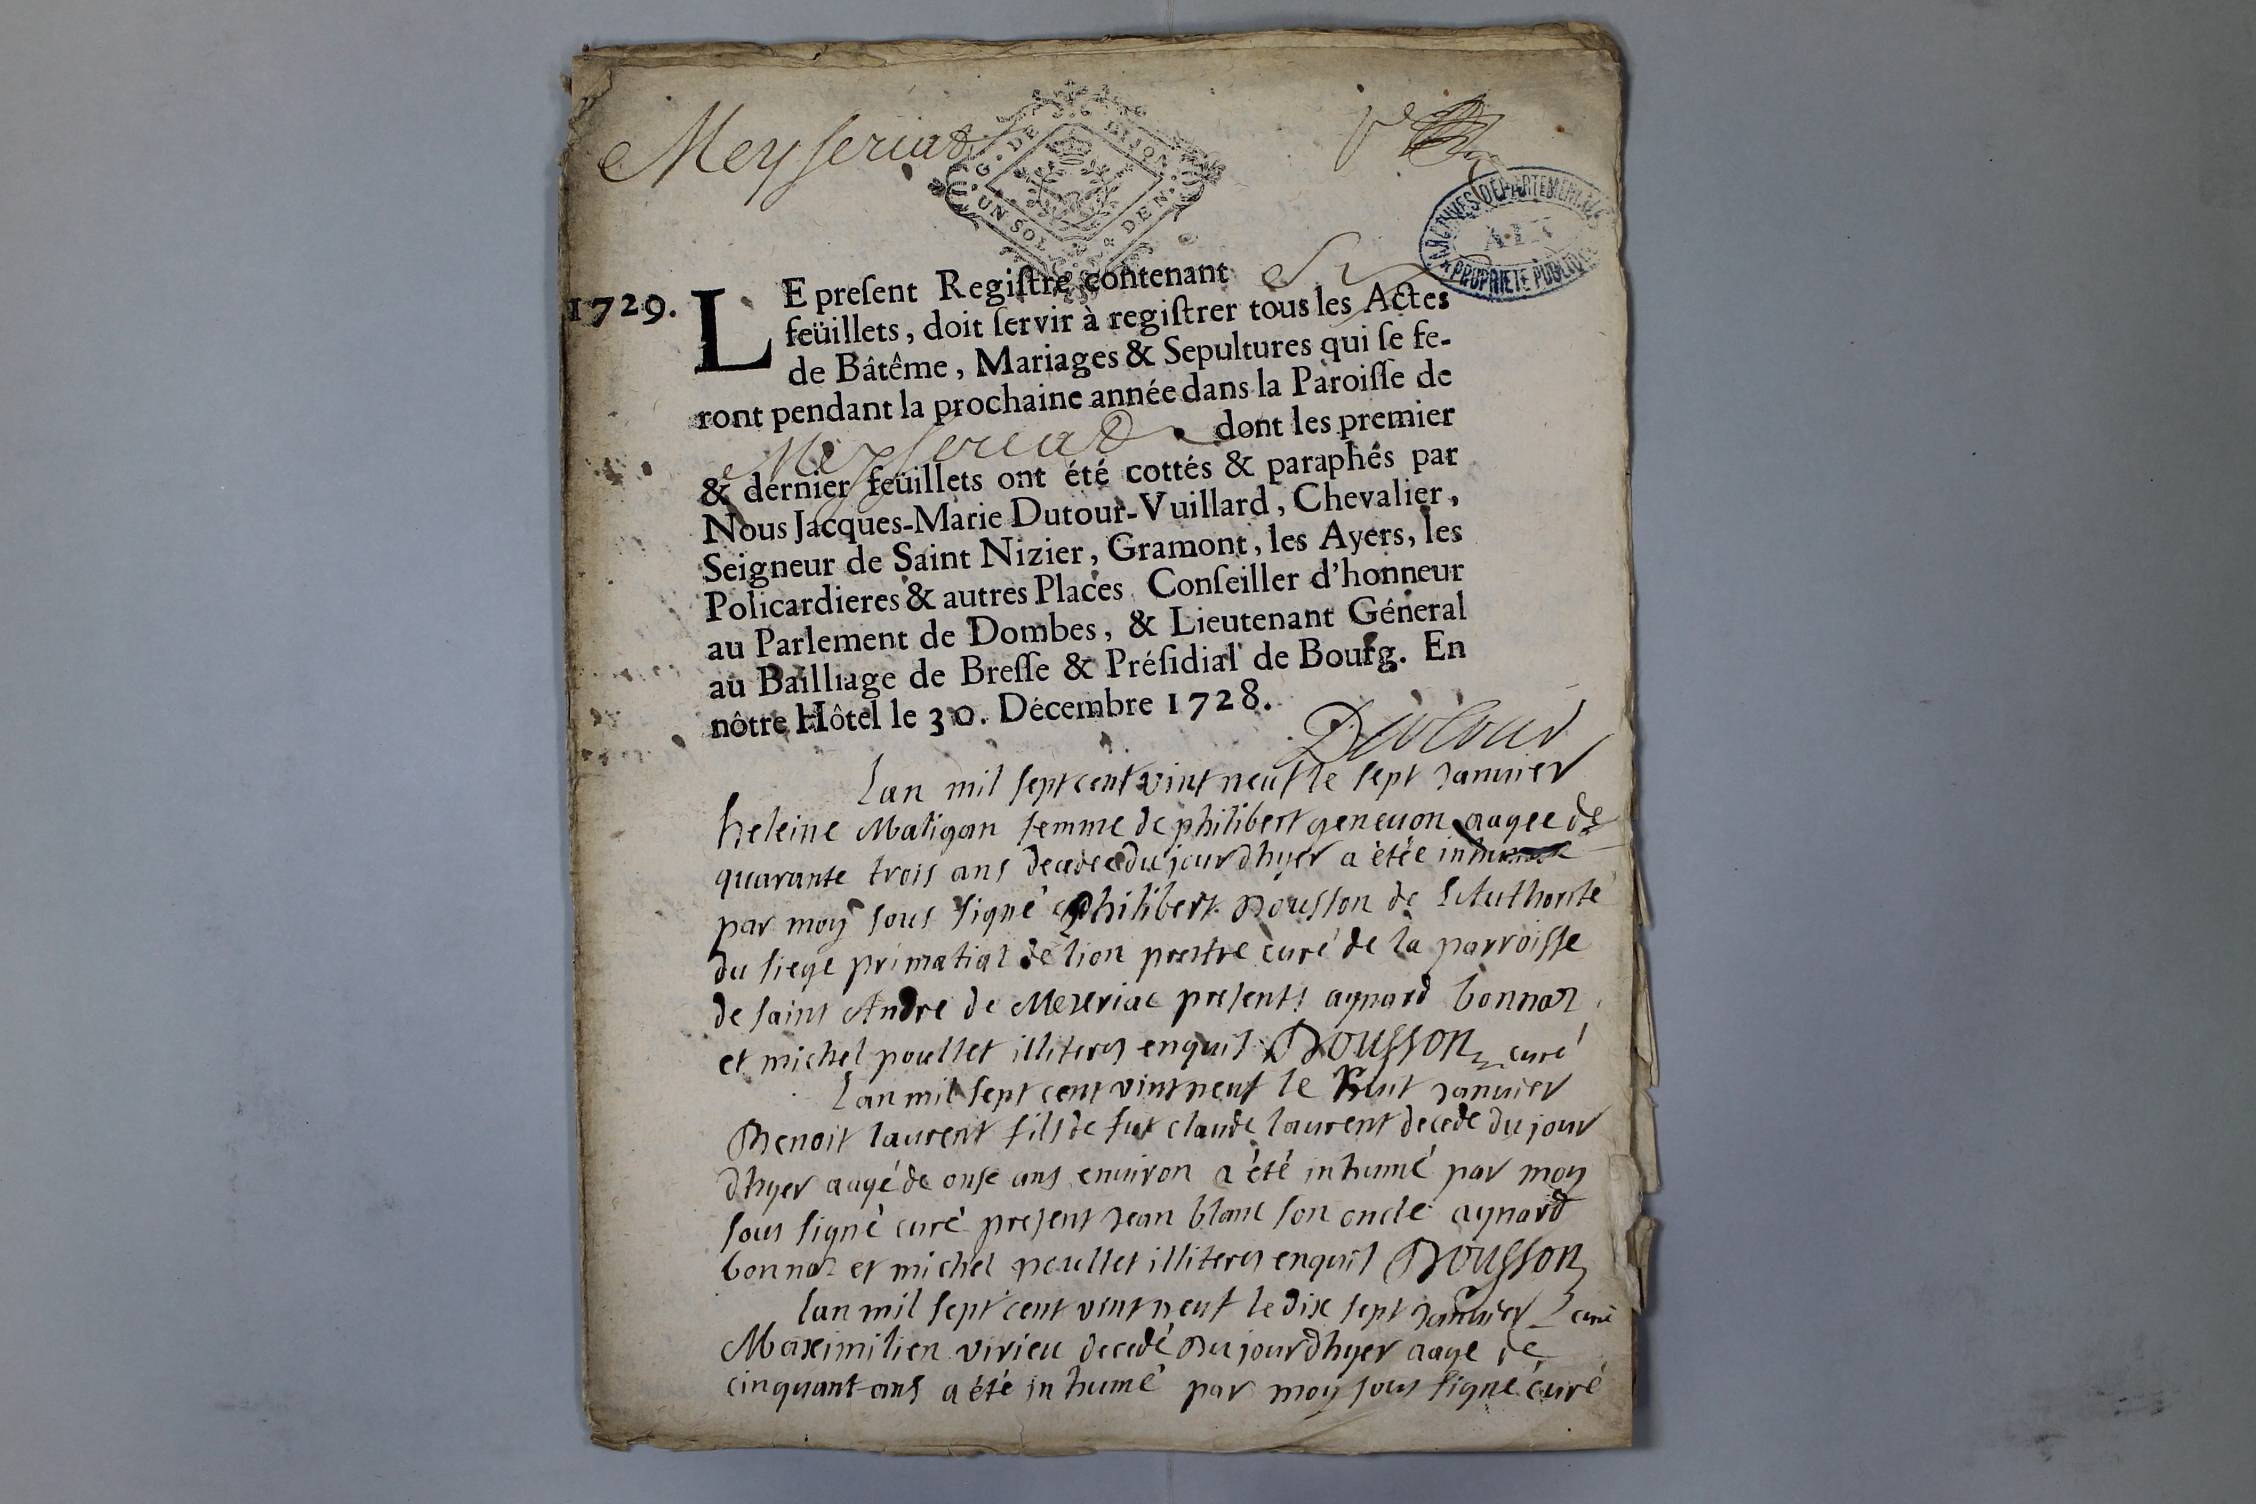 Meyseriat
G. DE DIJON
UN SOL 4 DEN.
ARCHIVES DEPARTEMENTALES
AIN
PROPRIETE PUBLIQUE
1729.
LE preſent Regiſtre contenant Six
feüillets, doit ſervir à regiſtrer tous les Actes
de Bâtême, Mariages & Sepultures qui ſe fe-
ront pendant la prochaine année dans la Paroiſſe de
Meyseriat dont les premier
& dernier feüillets ont été cottés & paraphés par
Nous Jacques-Marie Dutour-Vuillard, Chevalier,
Seigneur de Saint Nizier, Gramont, les Ayers, les
Policardieres & autres Places Conſeiller d'honneur
au Parlement de Dombes, & Lieutenant Géneral
au Bailliage de Breſſe & Préſidial de Bourg. En
nôtre Hôtel le 30. Décembre 1728.
Dutour
Lan mil sept cent vint neuf le sept Janvier
heleine Matigan femme de philibert geneuon aagee de
quarante trois ans decedee du jour dhyer a étée inhumee
par moy sous signé philibert Bousson de lAuthorité
du siege primatial de lion prestre curé de la parroisse
de saint Andre de Mezeriac presents aynard bonnaz
et michel poullet illiteres enquis Bousson curé
Lan mil sept cent vint neuf le huit Janvier
Benoit laurent fils de fut claude laurent decede du jour
dhyer aagé de onse ans enuiron a été inhumé par moy
sous signé curé present Jean blanc son oncle aynard
bonnaz et michel poullet illiteres enquis Bousson
curé
lan mil sept cent vint neuf le dix sept Janvier
Maximilien virieu decedé du jour dhyer aage de
cinquant ans a été inhumé par moy sous signé curé